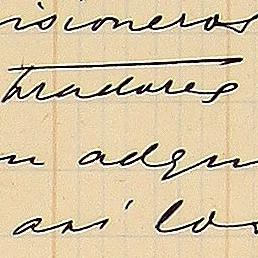 isioneros
tradores
n adqu
así los